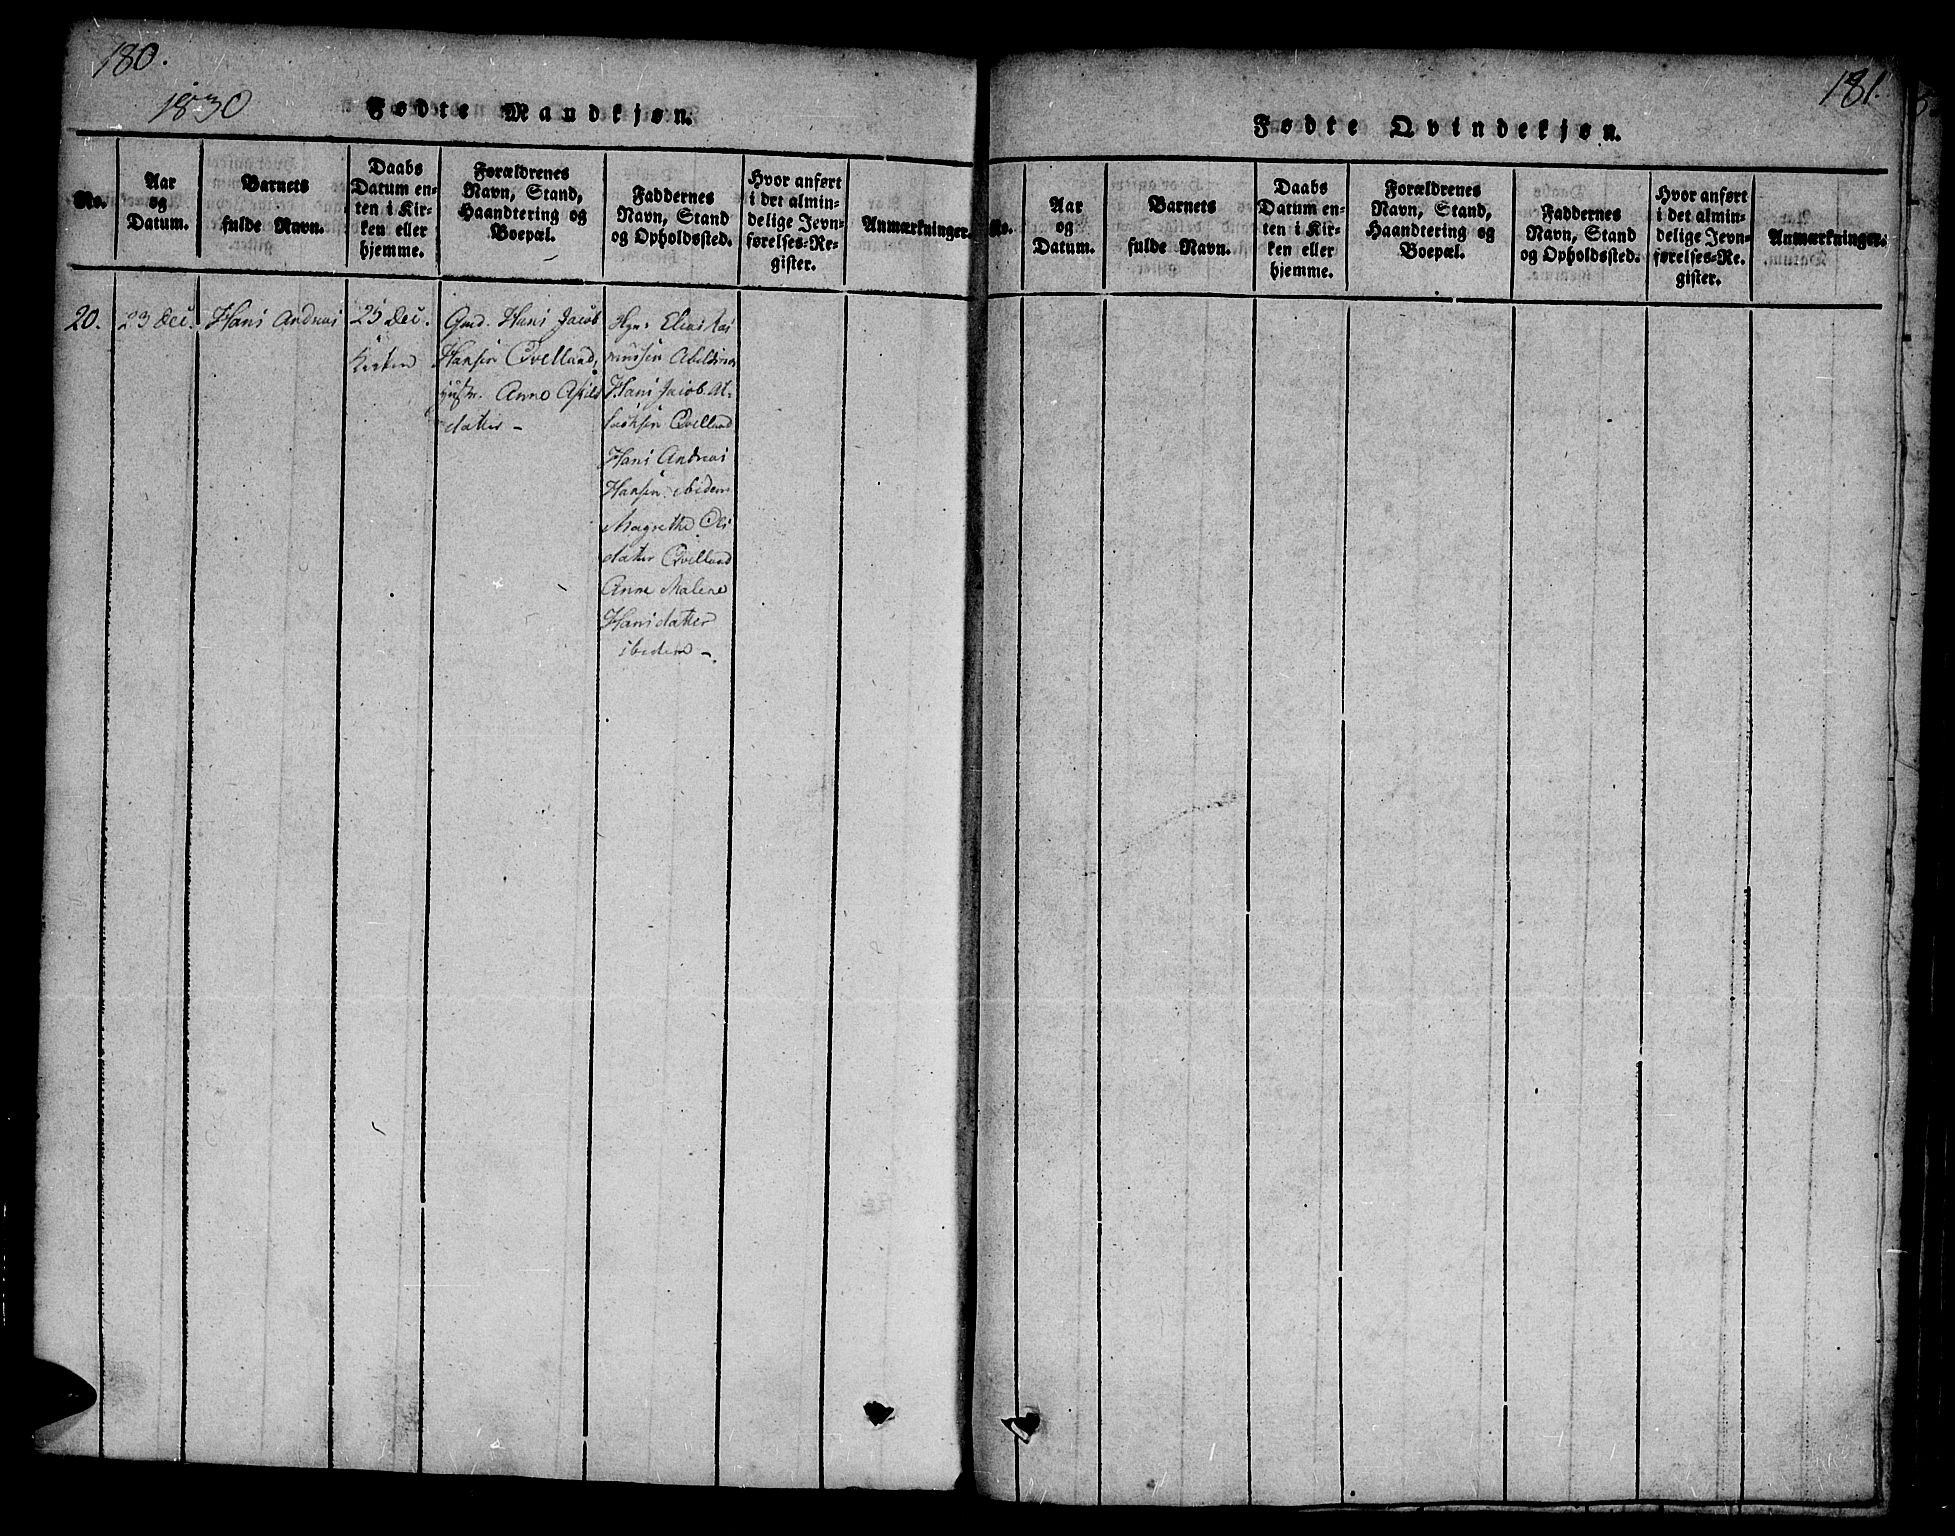 180.
1830
Fødte Mandkjøn.
No.
Aar
og
Datum.
Barnets
fulde Navn.
Daabs
Datum en-
ten i Kir-
ken eller
hjemme.
Forældrenes
Navn, Stand,
Haandtering og
Boepæl.
Faddernes
Navn, Stand
og Opholdssted.
Hvor anført
i det almin-
delige Jevn-
førelses-Re-
gister.
Anmærkninger.
20.
23 Dec.
Hans Andreas
25 Dec.
Kirken
Gmd. Hans Jacob
Hansen Qvelland,
Hustr. Anne
datter -
Elias Ras
mussen
Hans Jacob
Qvelland
Hans Andreas
Hansen ibidem
Magrethe Ols
datter Qvelland
Anne Malene
Hansdatter
ibidem -
181.
Fødte Qvindekjøn.
No.
Aar
og
Datum.
Barnets
fulde Navn.
Daabs
Datum en-
ten i Kir-
ken eller
hjemme.
Forældrenes
Navn, Stand,
Haandtering og
Boepæl.
Faddernes
Navn, Stand
og Opholdssted.
Hvor anført
i det almin-
delige Jevn-
førelses-Re-
gister.
Anmærkninger.